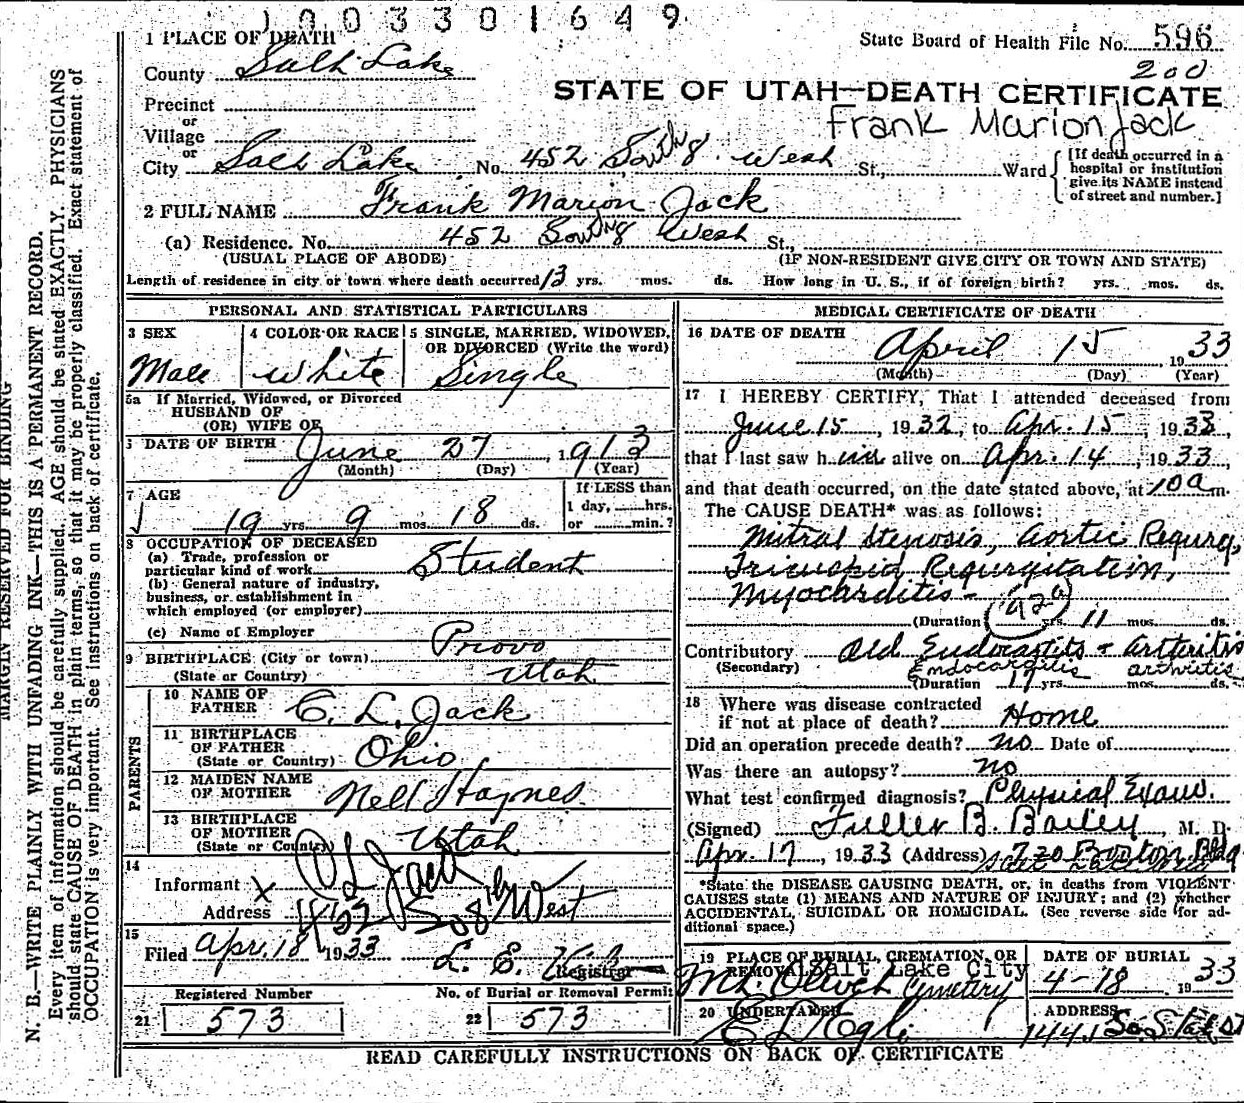 1003301649
1 PLACE OF DEATH
State Board of Health File No. 596
200
County Salt Lake
STATE OF UTAH—DEATH CERTIFICATE
Precinct
or
Frank Marion Jack
Village
or
City Salt Lake No. 452 South 8 West St., Ward
[If death occurred in a hospital or institution give its NAME instead of street and number.]
2 FULL NAME Frank Marion Jack
(a) Residence. No. 452 South 8 West St.,
(USUAL PLACE OF ABODE) (IF NON-RESIDENT GIVE CITY OR TOWN AND STATE)
Length of residence in city or town where death occurred 13 yrs. mos. ds. How long in U. S., if of foreign birth? yrs. mos. ds.
PERSONAL AND STATISTICAL PARTICULARS
3 SEX
Male
4 COLOR OR RACE
White
5 SINGLE, MARRIED, WIDOWED,
OR DIVORCED (Write the word)
Single
5a If Married, Widowed, or Divorced
HUSBAND OF
(OR) WIFE OF
DATE OF BIRTH June 27, 1913
(Month) (Day) (Year)
7 AGE
19 yrs. 9 mos. 18 ds.
If LESS than
1 day, hrs.
or min.?
8 OCCUPATION OF DECEASED
(a) Trade, profession or
particular kind of work Student
(b) General nature of industry,
business, or establishment in
which employed (or employer)
(c) Name of Employer
9 BIRTHPLACE (City or town) Provo
(State or Country) Utah
PARENTS
10 NAME OF
FATHER C. L. Jack
11 BIRTHPLACE
OF FATHER
(State or Country) Ohio
12 MAIDEN NAME
OF MOTHER Nell Haynes
13 BIRTHPLACE
OF MOTHER
(State or Country) Utah
14
Informant X C L Jack
Address 452 So 8th West
15
Filed Apr. 18 1933 L. E.
Registrar
Registered Number
21 573
No. of Burial or Removal Permit
22 573
MEDICAL CERTIFICATE OF DEATH
16 DATE OF DEATH
April 15, 1933
(Month) (Day) (Year)
17 I HEREBY CERTIFY, That I attended deceased from
June 15, 1932, to Apr. 15, 1933,
that I last saw him alive on Apr. 14, 1933,
and that death occurred, on the date stated above, at 10 a m.
The CAUSE DEATH* was as follows:
Mitral Stenosis, Aortic Regurg,
Tricuspid Regurgitation,
Myocarditis -
92a
(Duration yrs. 11 mos. ds.
Contributory Old Endocartits - Artteritis
(Secondary) Endocarditis arthritis
(Duration 17 yrs. mos. ds.
18 Where was disease contracted
if not at place of death? Home
Did an operation precede death? no Date of
Was there an autopsy? no
What test confirmed diagnosis? Physical Exam.
(Signed) Fuller B. Bailey, M. D.
Apr. 17, 1933 (Address) 720 Boston Bldg
*State the DISEASE CAUSING DEATH, or, in deaths from VIOLENT
CAUSES state (1) MEANS AND NATURE OF INJURY; and (2) whether
ACCIDENTAL, SUICIDAL OR HOMICIDAL. (See reverse side for ad-
ditional space.)
19 PLACE OF BURIAL, CREMATION, OR
REMOVAL Salt Lake City
Mt. Olivet Cemetery
DATE OF BURIAL
4-18, 1933
20 UNDERTAKER
ADDRESS
1441 So. State St
READ CAREFULLY INSTRUCTIONS ON BACK OF CERTIFICATE
MARGIN RESERVED FOR BINDING
N. B.—WRITE PLAINLY WITH UNFADING INK—THIS IS A PERMANENT RECORD.
Every item of information should be carefully supplied. AGE should be stated EXACTLY. PHYSICIANS
should state CAUSE OF DEATH in plain terms, so that it may be properly classified. Exact statement of
OCCUPATION is very important. See instructions on back of certificate.